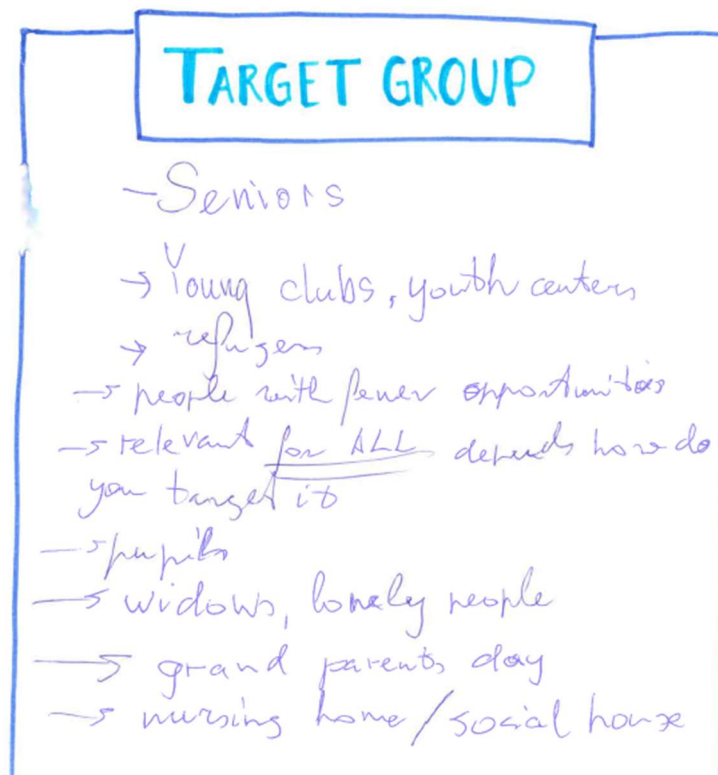 TARGET GROUP
- Seniors
→ Young clubs, youth centers
→ refugees
→ people with fewer opportunities
→ relevant for ALL depends how do
you target it
→ pupils
→ widows, lonely people
→ grand parents day
→ nursing home / social house